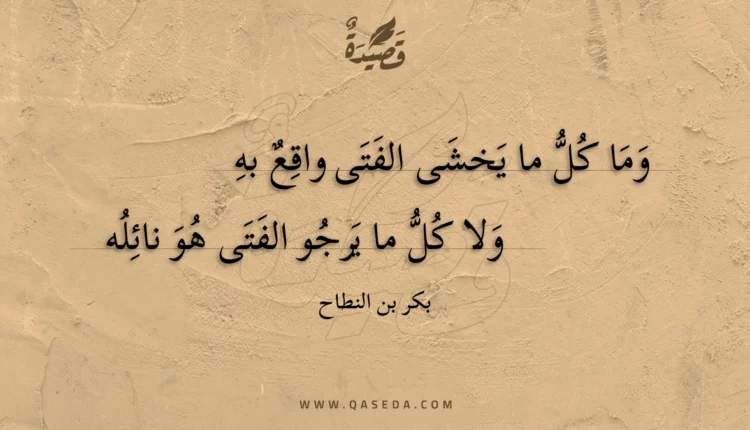 قَصِيدَةٌ
وَمَا كُلُّ ما يَخشَى الفَتَى واقِعٌ بهِ
وَلا كُلُّ ما يَرجُو الفَتَى هُوَ نائِلُه
بكر بن النطاح
WWW.QASEDA.COM